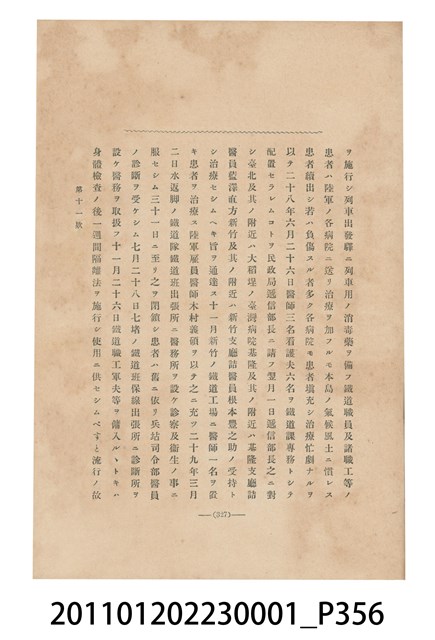 ヲ施行シ列車出發驛ニ列車用ノ消毒藥ヲ備フ鐵道職員及諸職工等ノ
患者ハ陸軍ノ各病院ニ送リ治療ヲ加フルモ本島ノ氣候風土ニ慣レス
患者續出シ若ハ負傷スル者多ク各病院モ患者填充シ治療忙劇ナルヲ
以テ二十八年六月二十六日醫師三名看護夫六名ヲ鐵道課專務トシテ
配置セラレムコトヲ民政局遞信部長ニ請フ翌月一日遞信部長之ニ對
シ臺北及其ノ附近ハ大稻埕ノ臺灣病院基隆及其ノ附近ハ基隆支廳詰
醫員藍澤直方新竹及其ノ附近ハ新竹支廳詰醫員根本豊之助ノ受持ト
シ治療セシムヘキ旨ヲ通達ス十一月新竹ノ鐵道工場ニ醫師一名ヲ置
キ患者ヲ治療ス陸軍雇員醫師木村義領ヲ以テ之ニ充ツ二十九年三月
二日水返脚ノ鐵道隊鐵道班出張所ニ醫務所ヲ設ケ診察及衞生ノ事ニ
服セシム三十一日ニ至リ之ヲ閉鎖シ患者ハ舊ニ依リ兵站司令部醫員
ノ診斷ヲ受ケシム七月二十八日七堵ノ鐵道班保線出張所ニ診斷所ヲ
設ケ醫務ヲ取扱フ十一月二十六日鐵道職工軍夫等ヲ傭入ルヽトキハ
身體檢查ノ後一週間隔離法ヲ施行シ使用ニ供セシムへすと流行ノ故
第十一欵
(327)
201101202230001_P356